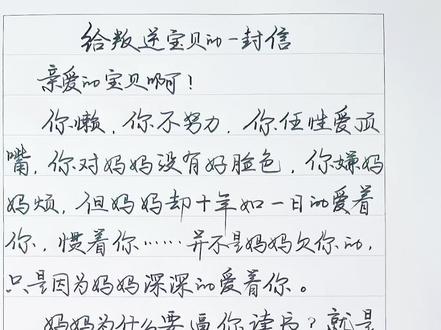 给叛逆宝贝的一封信
亲爱的宝贝啊！
你懒，你不努力，你任性爱顶
嘴，你对妈妈没有好脸色，你嫌妈
妈烦，但妈妈却十年如一日的爱着
你，惯着你……并不是妈妈欠你的，
只是因为妈妈深深的爱着你。
妈妈为什么要逼你读书？就是